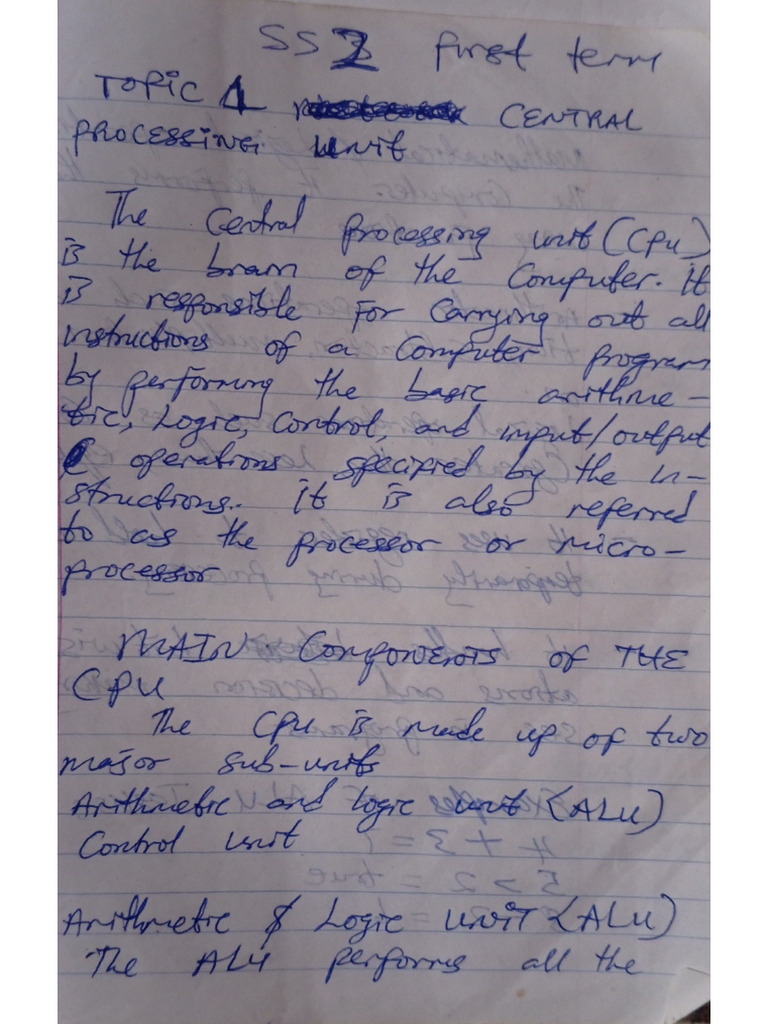 SS 2 first term
TOPIC 1 CENTRAL
PROCESSING unit
The Central processing unit (CPU)
is the brain of the Computer. It
is responsible for Carrying out all
instructions of a Computer program
by performing the basic arithme-
tic, Logic, Control, and input/output
operations specified by the in-
structions. it is also referred
to as the processor or micro-
processor
MAIN ComPONENTS of THE
CPU
The CPU is made up of two
major sub-units
Arithmetic and logic unit (ALU)
Control unit
Arithmetic & Logic UNIT (ALU)
The ALU performs all the